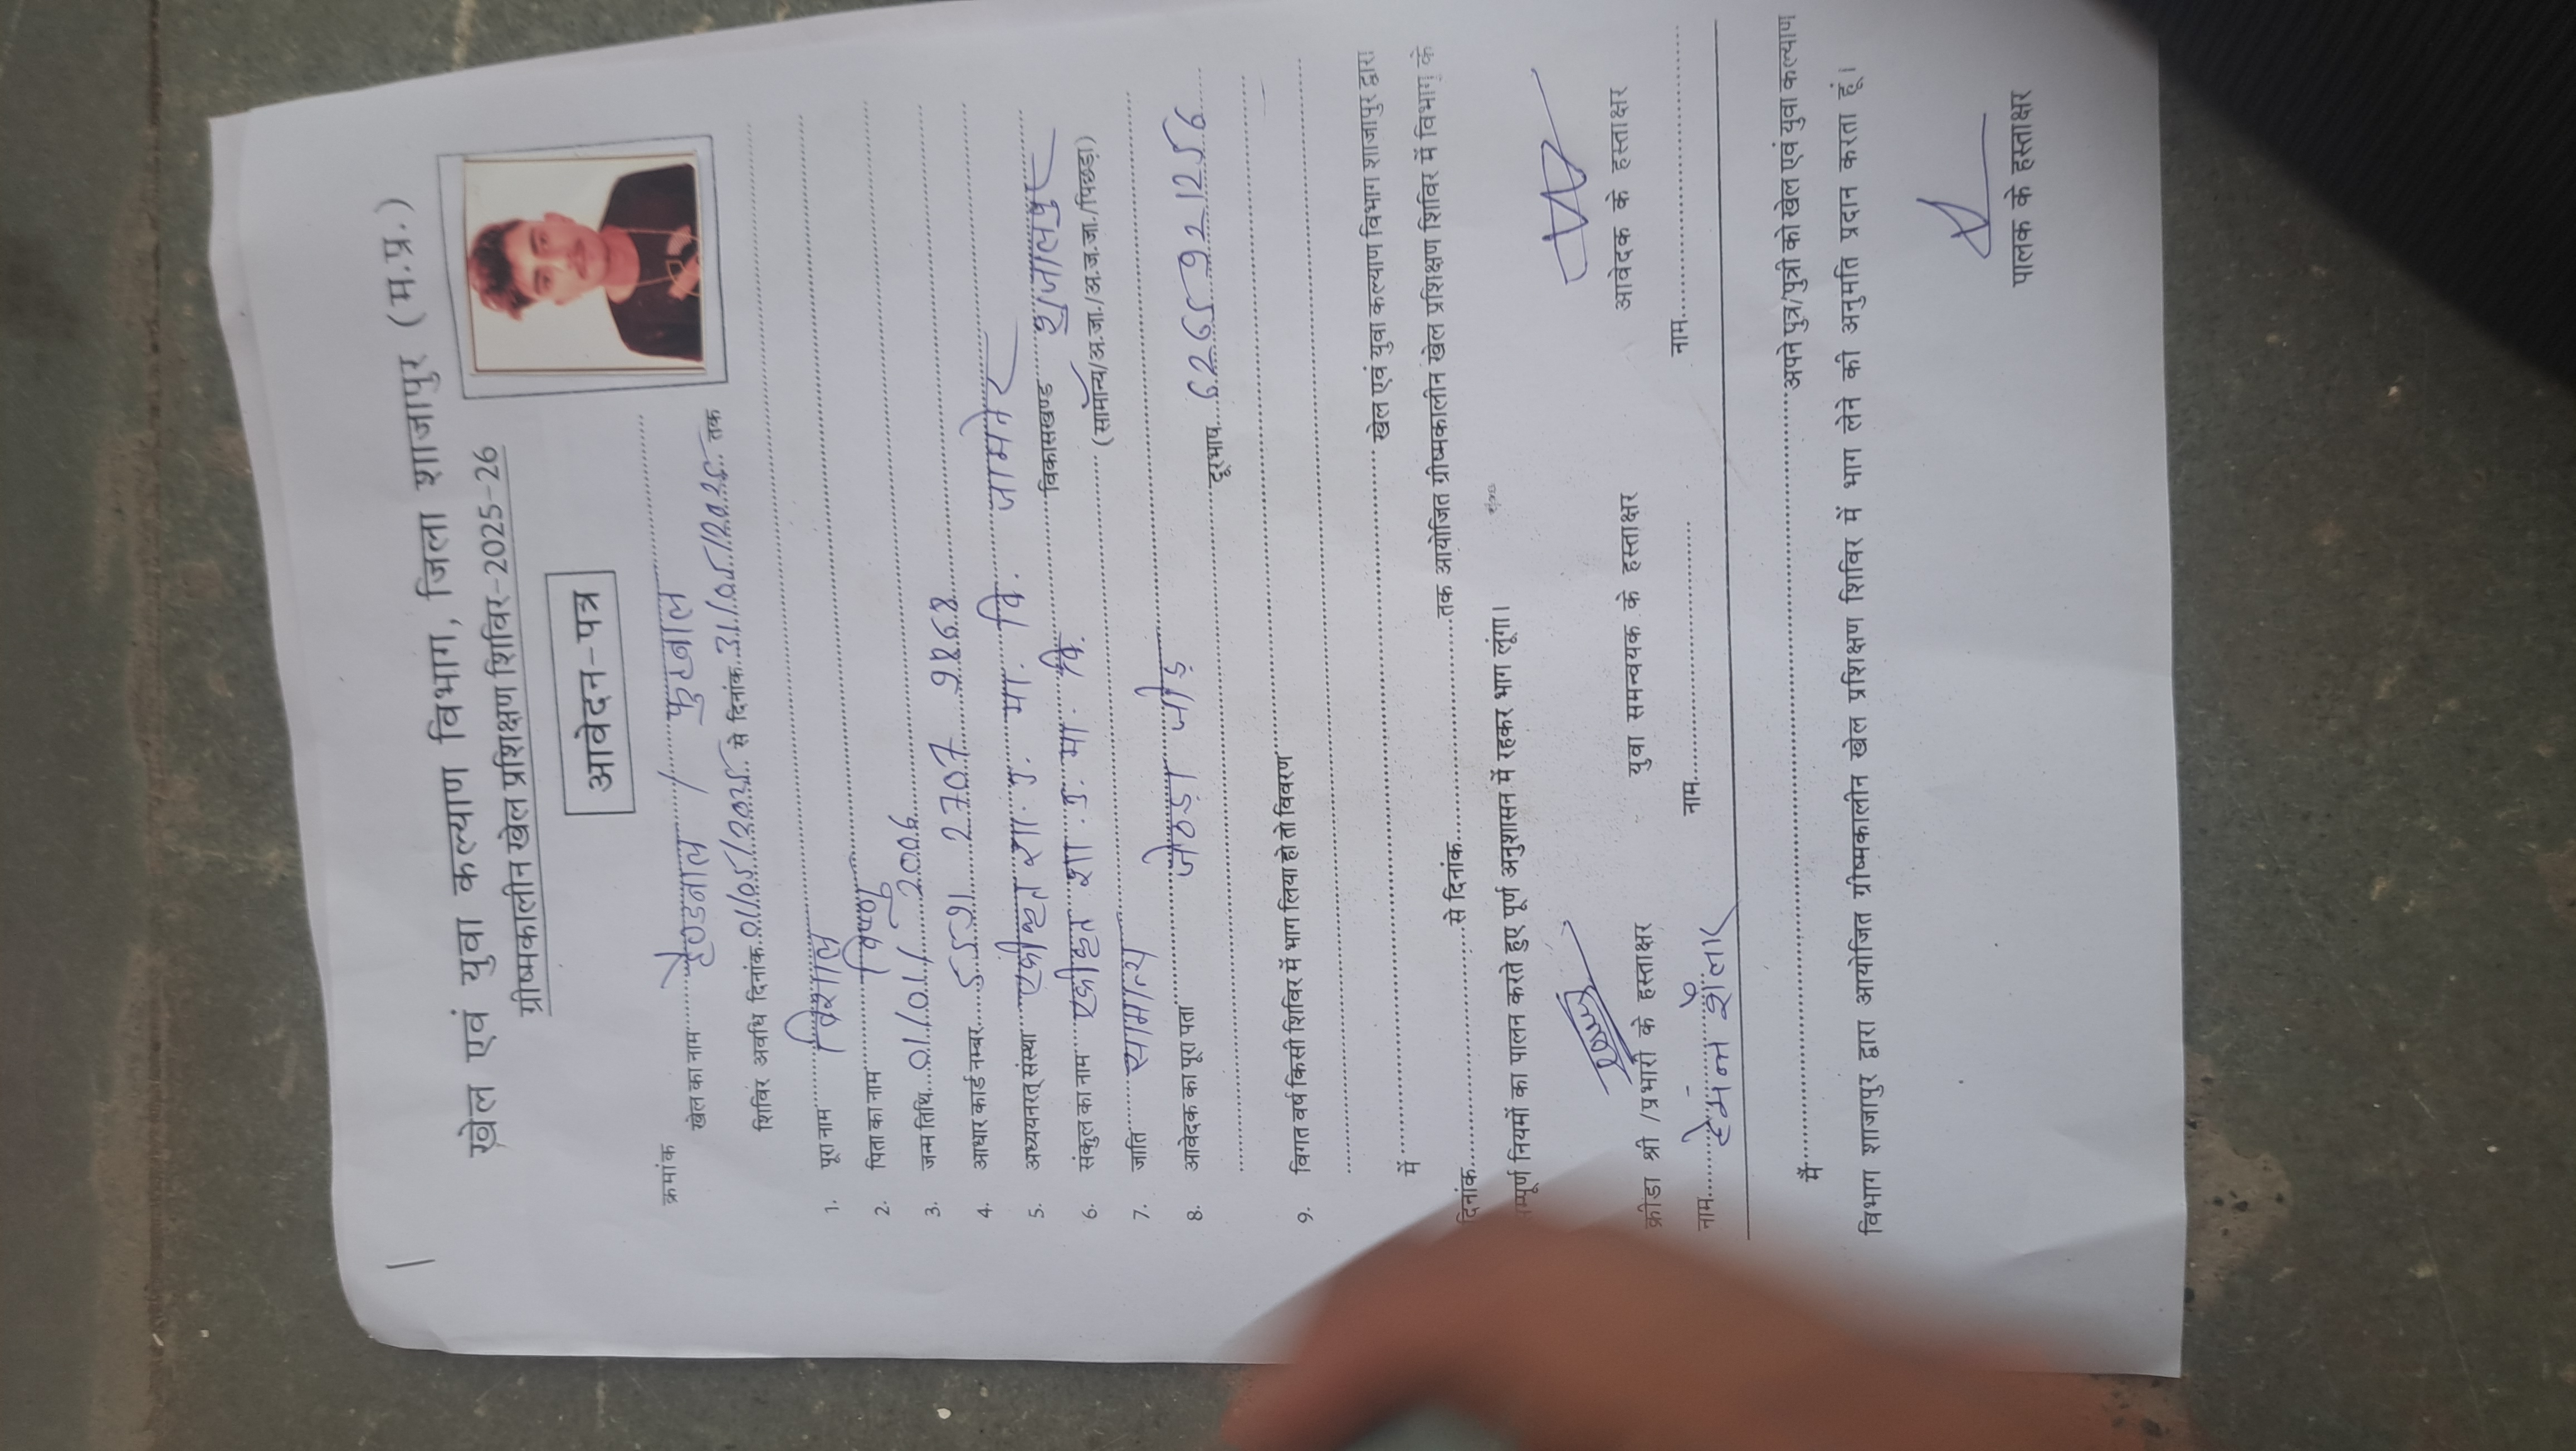 खेल एवं युवा कल्याण विभाग, जिला शाजापुर (म.प्र.)
ग्रीष्मकालीन खेल प्रशिक्षण शिविर-2025-26
आवेदन-पत्र
क्रमांक
खेल का नाम हेण्डबाल / फुटबाल
शिविर अवधि दिनांक 01/05/2025 से दिनांक 31/05/2025 तक
1. पूरा नाम विशाल
2. पिता का नाम विष्णु
3. जन्म तिथि 01/01/2006
4. आधार कार्ड नम्बर 5591 2707 9868
5. अध्ययनरत् संस्था एकीकृत शा. उ. मा. वि. जामनेर
6. संकुल का नाम एकीकृत शा. उ. मा. वि. विकासखण्ड शुजालपुर
7. जाति सामान्य (सामान्य/अ.जा./अ.ज.जा./पिछड़ा)
8. आवेदक का पूरा पता जेठड़ा जोड़ दूरभाष 6265921256
9. विगत वर्ष किसी शिविर में भाग लिया हो तो विवरण
में खेल एवं युवा कल्याण विभाग शाजापुर द्वारा
दिनांक से दिनांक तक आयोजित ग्रीष्मकालीन खेल प्रशिक्षण शिविर में विभाग के
सम्पूर्ण नियमों का पालन करते हुए पूर्ण अनुशासन में रहकर भाग लूंगा।
क्रीडा श्री /प्रभारी के हस्ताक्षर युवा समन्वयक के हस्ताक्षर आवेदक के हस्ताक्षर
नाम हेमंत नाम नाम
मैं अपने पुत्र/पुत्री को खेल एवं युवा कल्याण
विभाग शाजापुर द्वारा आयोजित ग्रीष्मकालीन खेल प्रशिक्षण शिविर में भाग लेने की अनुमति प्रदान करता हूं।
पालक के हस्ताक्षर